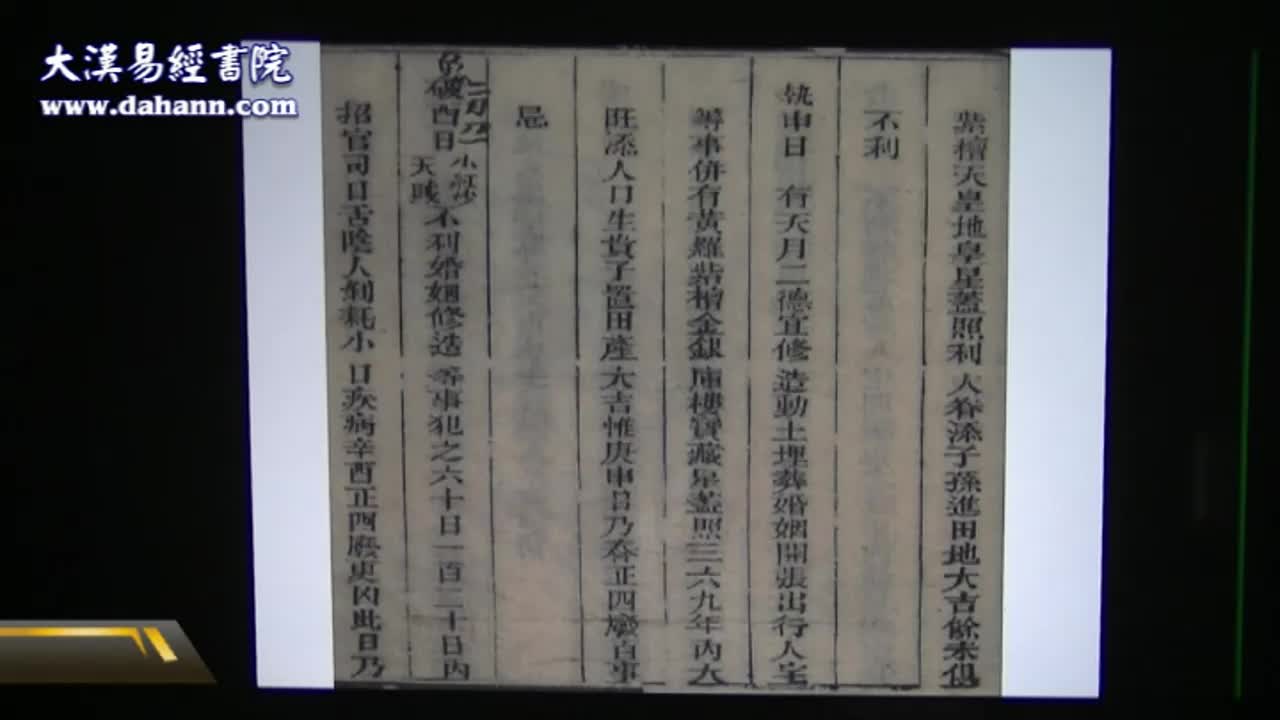 大漢易經書院
www.dahann.com
紫檀天皇地皇星蓋照利人眷添子孫進田地大吉餘未俱
不利
執申日 有天月二德宜修造動土埋葬婚姻開張出行人宅
等事併有黃羅紫檀金銀庫樓寶藏星蓋照三六九年內大
旺添人口生貴子置田產大吉惟庚申日乃春正四廢百事
忌
破酉日 小紅沙 天賊 不利婚姻修造等事犯之六十日一百二十日內
招官司口舌陰人耗小口疾病辛酉正四廢更凶此日乃